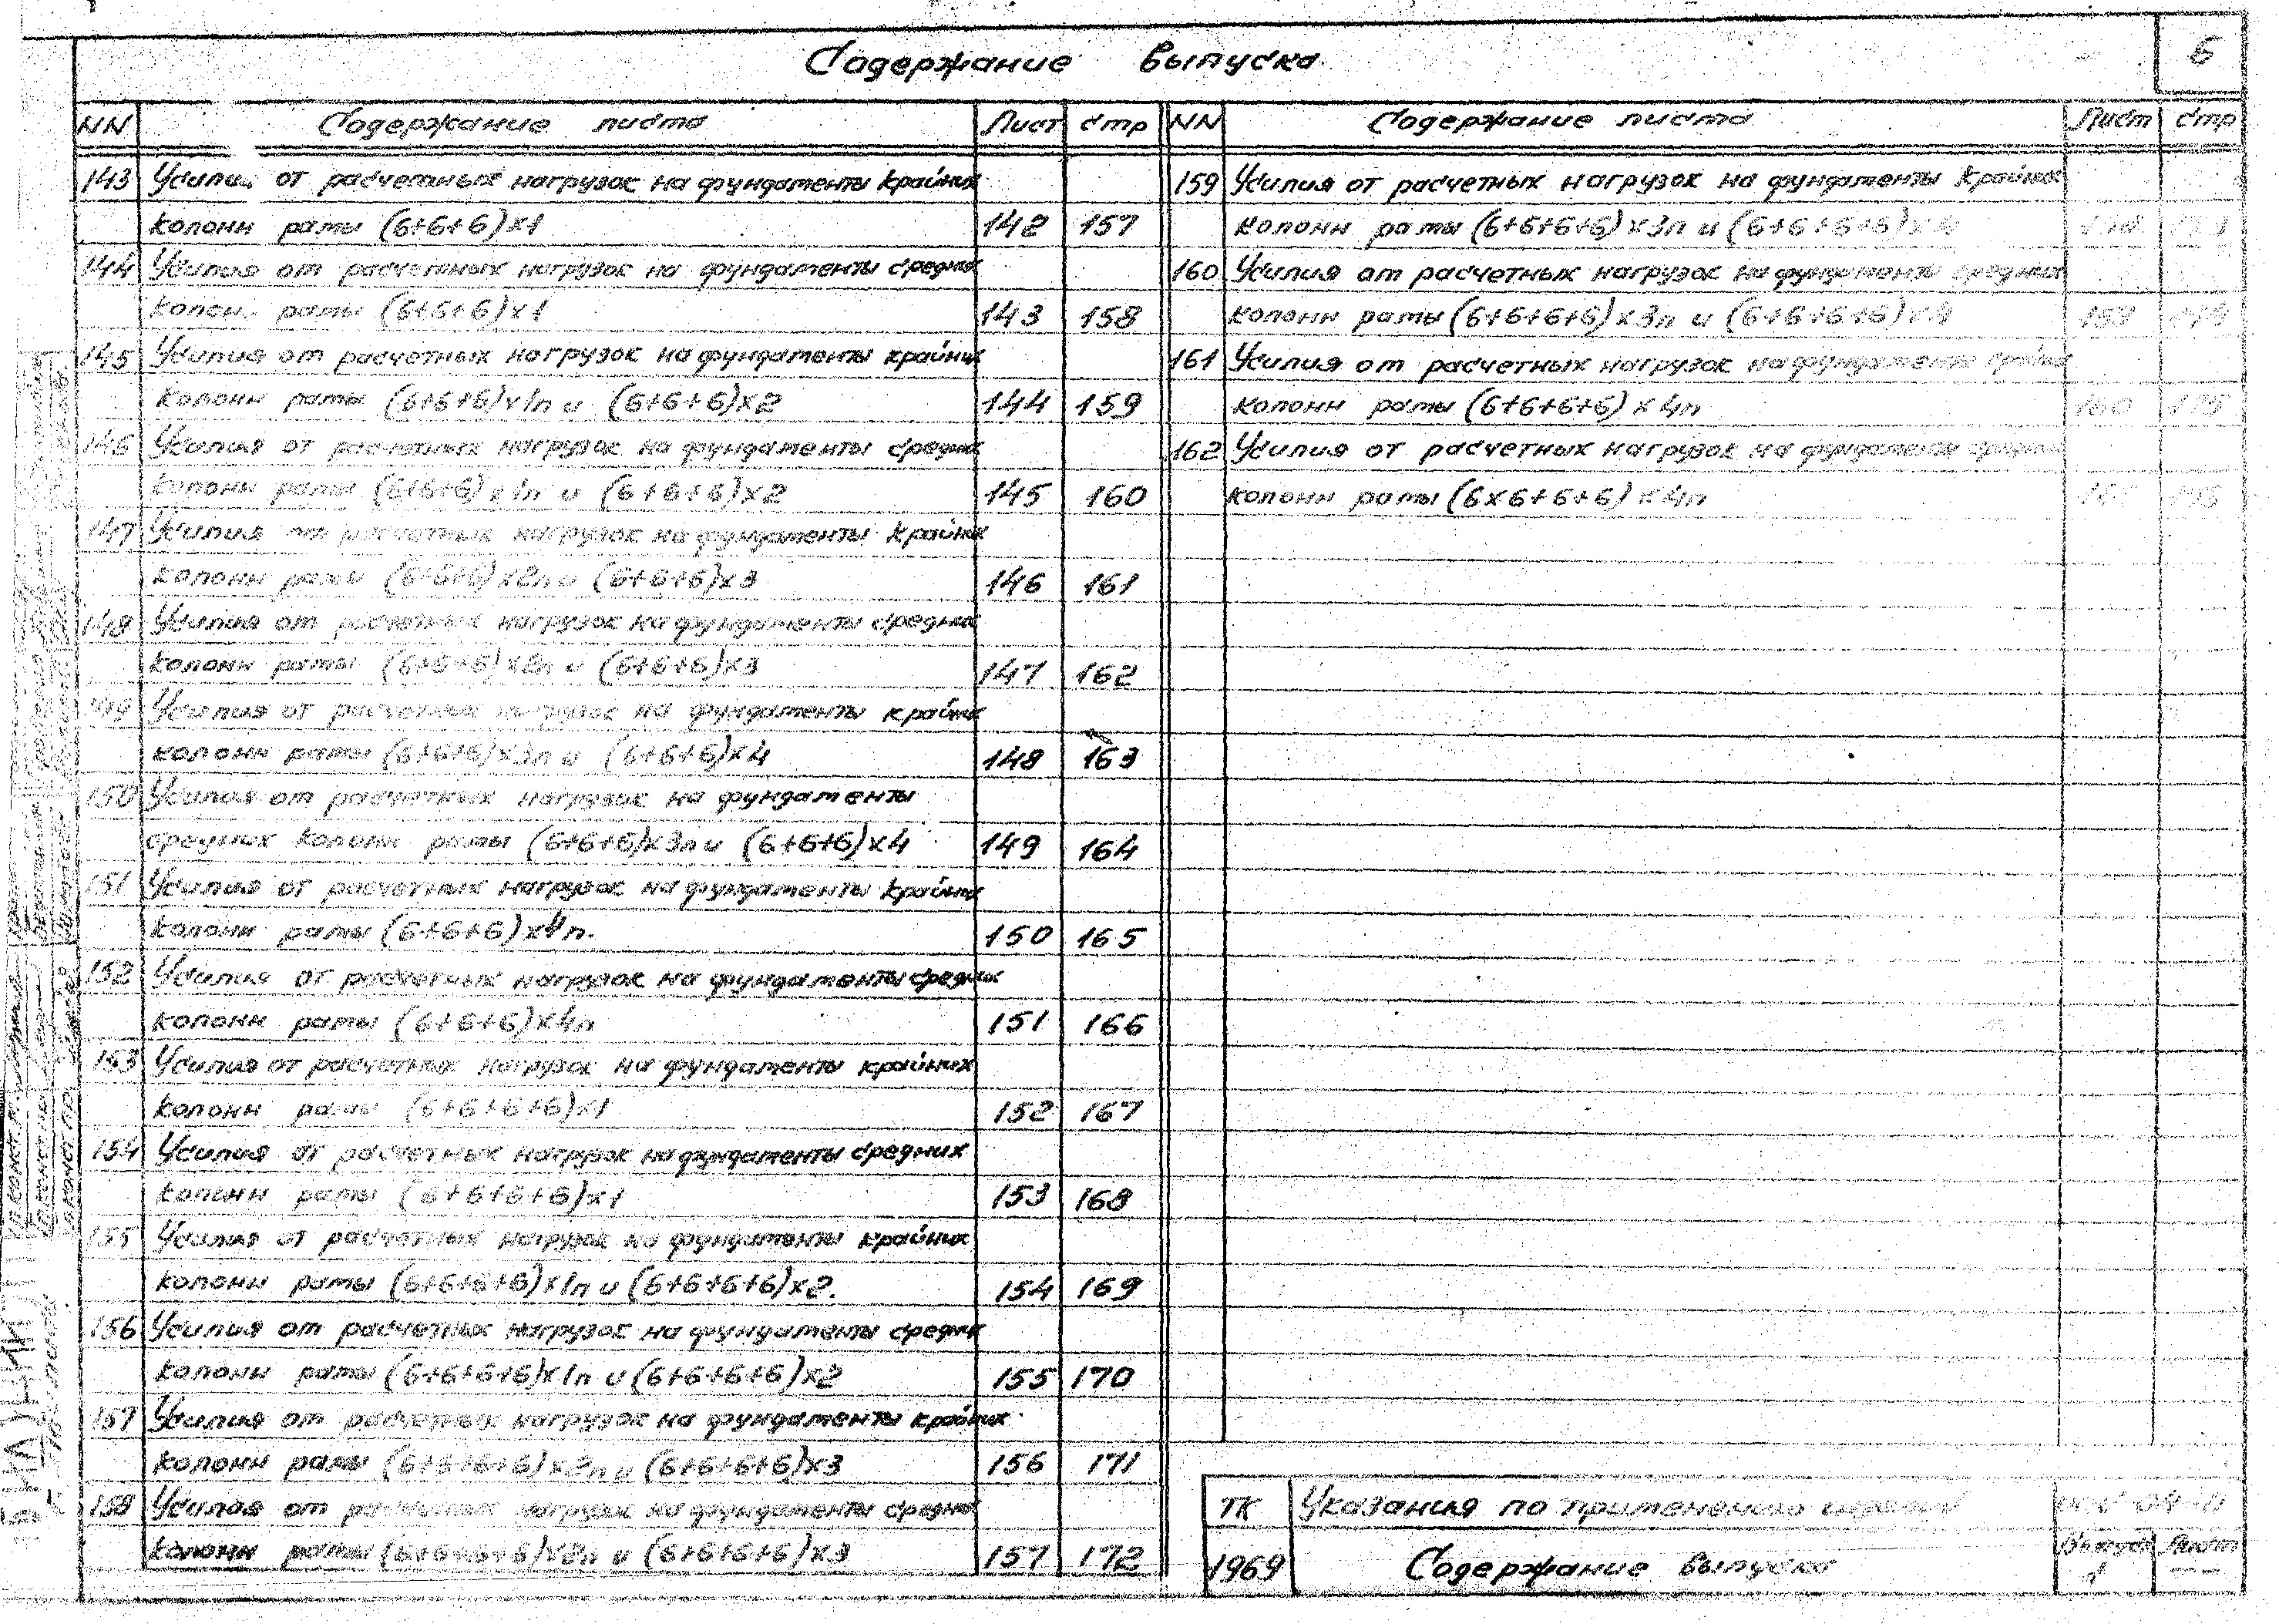 Содержание выпуска
6
NN Содержание листа Лист стр
143 Усилия от расчетных нагрузок на фундаменты крайних
колонн рамы (6+6+6)х1 142 157
144 Усилия от расчетных нагрузок на фундаменты средних
колонн рамы (6+6+6)х1 143 158
145 Усилия от расчетных нагрузок на фундаменты крайних
колонн рамы (6+6+6)х1п и (6+6+6)х2 144 159
146 Усилия от расчетных нагрузок на фундаменты средних
колонн рамы (6+6+6)х1п и (6+6+6)х2 145 160
147 Усилия от расчетных нагрузок на фундаменты крайних
колонн рамы (6+6+6)х2п и (6+6+6)х3 146 161
148 Усилия от расчетных нагрузок на фундаменты средних
колонн рамы (6+6+6)х2п и (6+6+6)х3 147 162
149 Усилия от расчетных нагрузок на фундаменты крайних
колонн рамы (6+6+6)х3п и (6+6+6)х4 148 163
150 Усилия от расчетных нагрузок на фундаменты
средних колонн рамы (6+6+6)х3п и (6+6+6)х4 149 164
151 Усилия от расчетных нагрузок на фундаменты крайних
колонн рамы (6+6+6)х4п. 150 165
152 Усилия от расчетных нагрузок на фундаменты средних
колонн рамы (6+6+6)х4п 151 166
153 Усилия от расчетных нагрузок на фундаменты крайних
колонн рамы (6+6+6+6)х1 152 167
154 Усилия от расчетных нагрузок на фундаменты средних
колонн рамы (6+6+6+6)х1 153 168
155 Усилия от расчетных нагрузок на фундаменты крайних
колонн рамы (6+6+6+6)х1п и (6+6+6+6)х2. 154 169
156 Усилия от расчетных нагрузок на фундаменты средних
колонн рамы (6+6+6+6)х1п и (6+6+6+6)х2 155 170
157 Усилия от расчетных нагрузок на фундаменты крайних
колонн рамы (6+6+6+6)х2п и (6+6+6+6)х3 156 171
158 Усилия от расчетных нагрузок на фундаменты средних
колонн рамы (6+6+6+6)х2п и (6+6+6+6)х3 157 172
NN Содержание листа Лист стр
159 Усилия от расчетных нагрузок на фундаменты крайних
колонн рамы (6+6+6+6)х3п и (6+6+6+6)х4
160 Усилия от расчетных нагрузок на фундаменты средних
колонн рамы (6+6+6+6)х3п и (6+6+6+6)х4 159 174
161 Усилия от расчетных нагрузок на фундаменты крайних
колонн рамы (6+6+6+6)х4п 160 175
162 Усилия от расчетных нагрузок на фундаменты средних
колонн рамы (6х6+6+6)х4п
ТК Указания по применению изделий
1969 Содержание выпуска Выпуск 1 Лист --